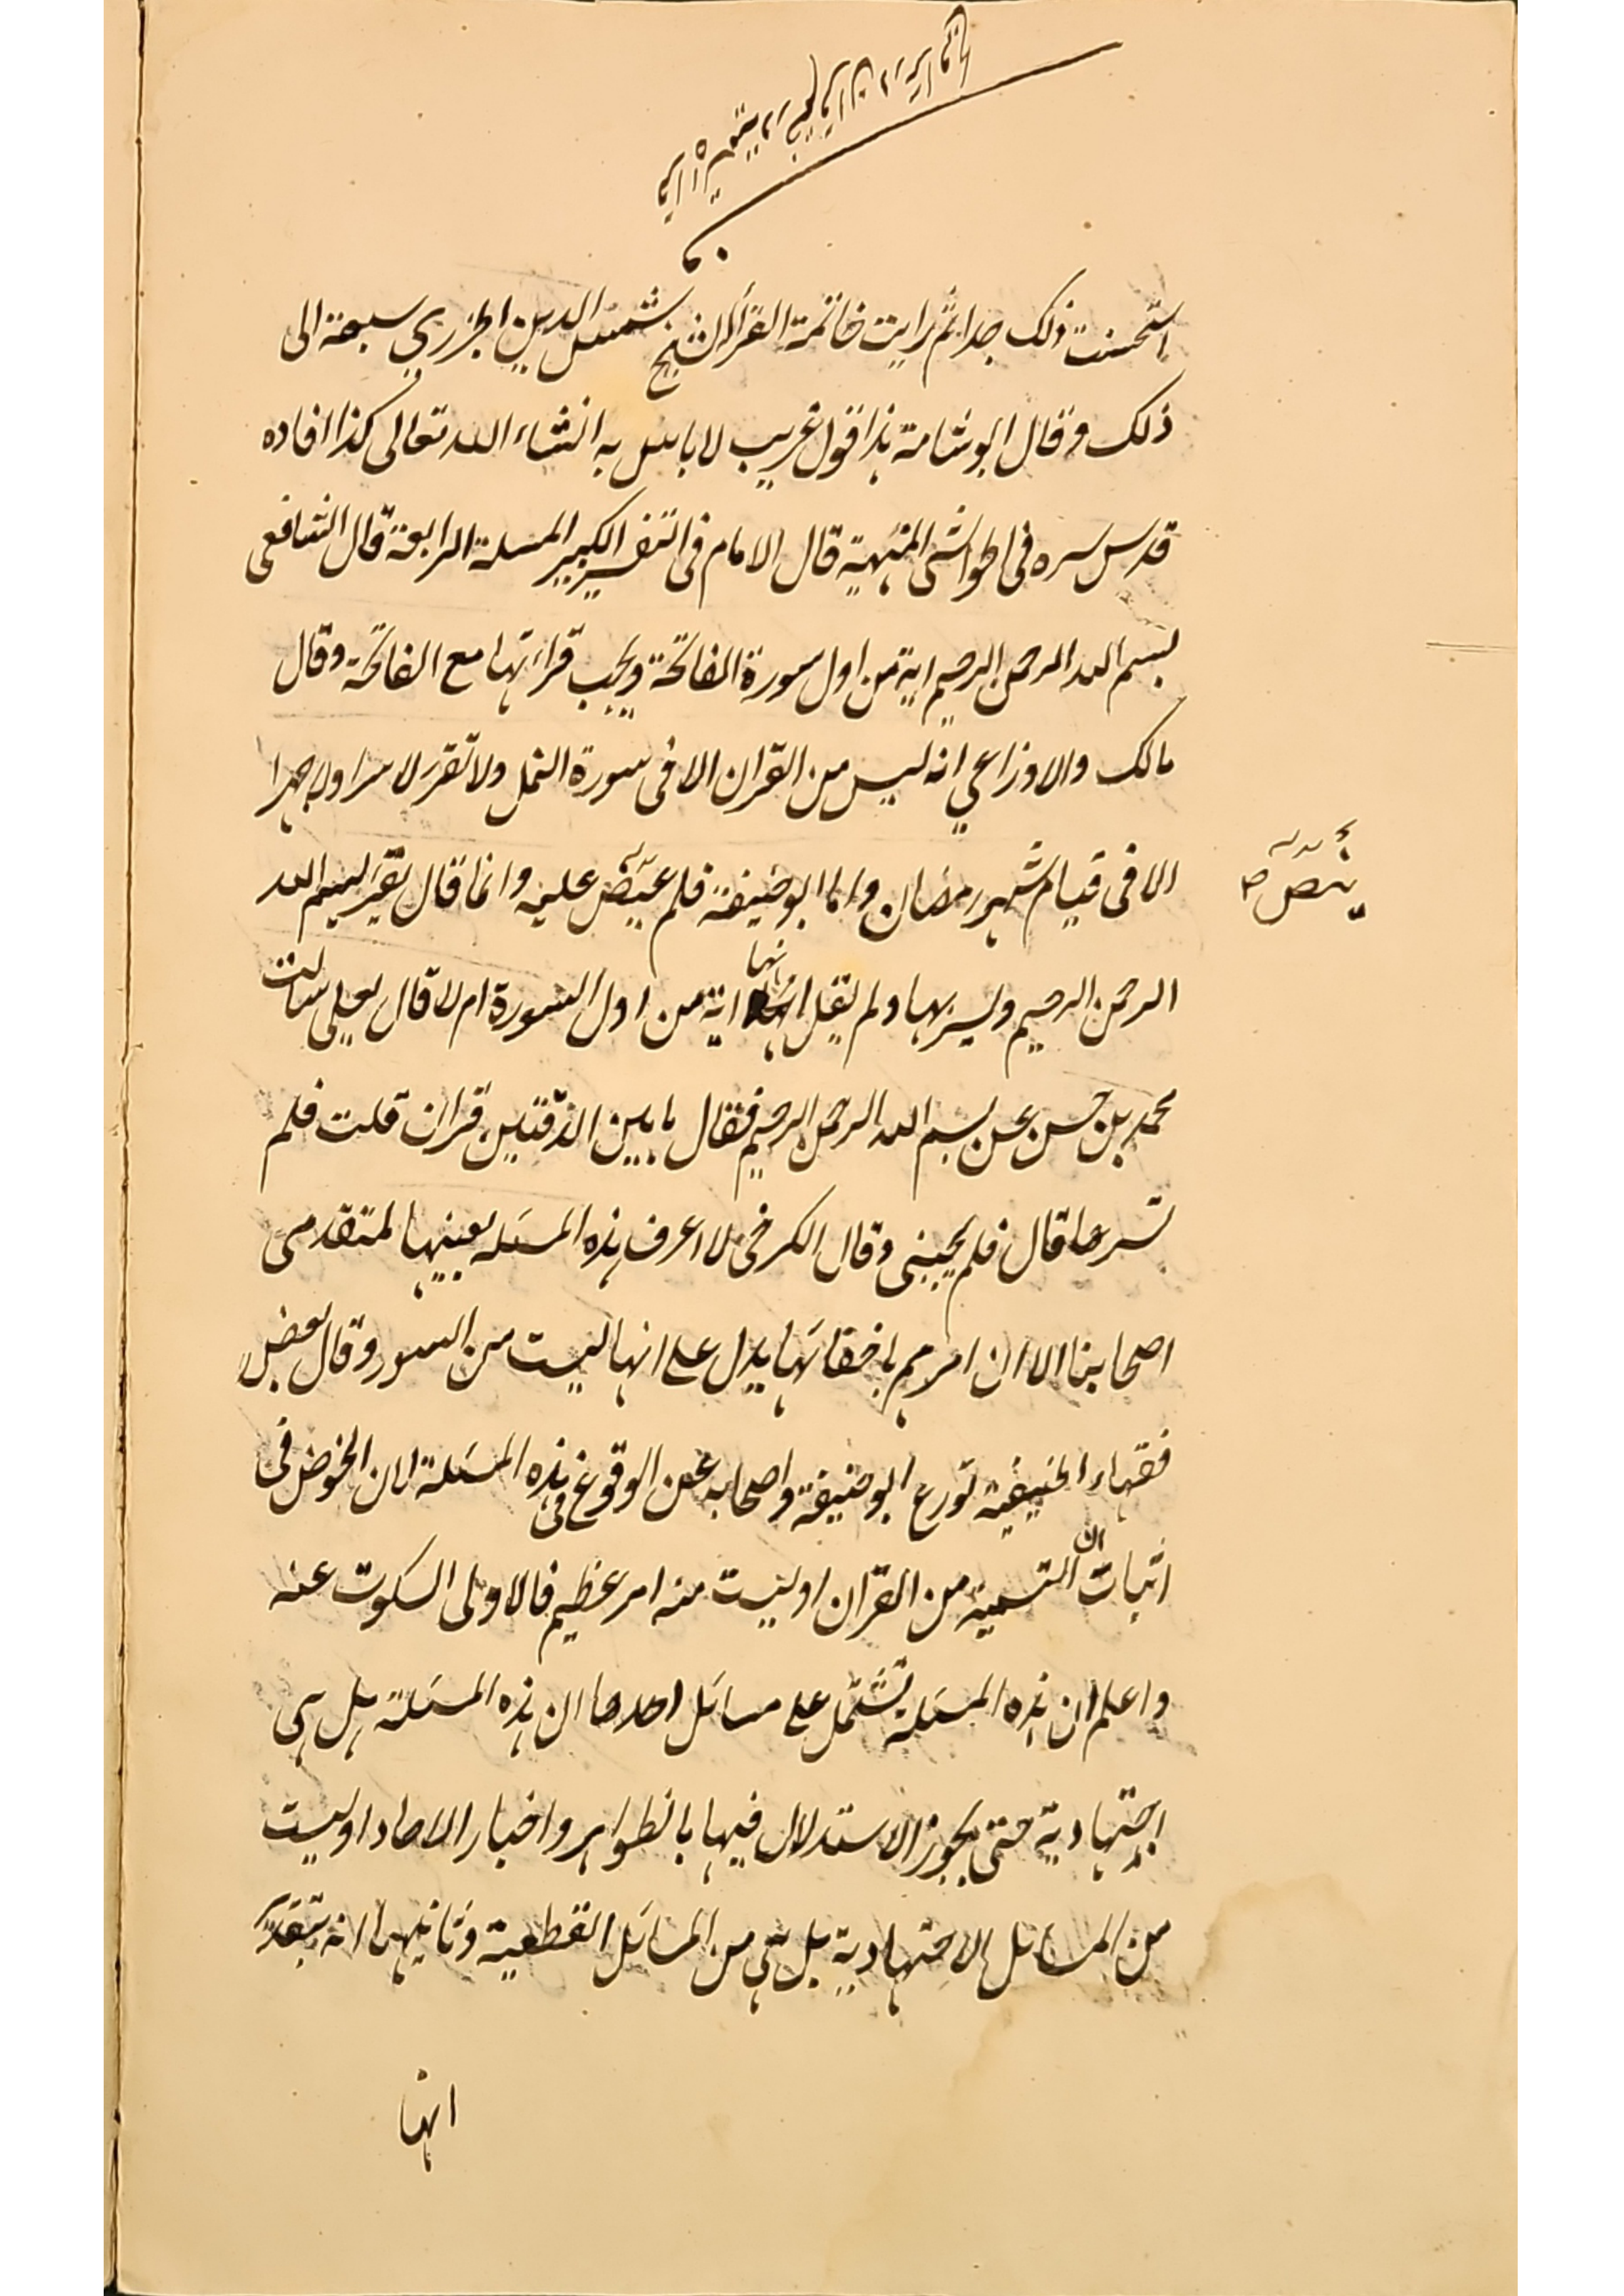 استحسنت ذلک جدا ثم رایت خاتمة القراء الشیخ شمس الدین الجزري سبقه الی
ذلک وقال ابو شامة هذا قول غریب لا باس به انشاء الله تعالی کذا افاده
قدس سره فی الحواشی المنهیة قال الامام فی التفسیر الکبیر المسئلة الرابعة قال الشافعی
بسم الله الرحمن الرحیم ایة من اول سورة الفاتحة ویجب قراءتها مع الفاتحة وقال
مالک والاوزاعي انه لیس من القران الا فی سورة النمل ولا تقرء لا سرا ولا جهرا
الا فی قیام شهر رمضان واما ابو حنیفة فلم ینص علیه وانما قال یقرء بسم الله
ینص
الرحمن الرحیم ویسر بها ولم یقل انها ایة من اول السورة ام لا قال یعلی سالت
محمد بن حسن عن بسم الله الرحمن الرحیم فقال ما بین الدفتین قران قلت فلم
تسرها قال فلم یجبنی وقال الکرخی لا اعرف هذه المسئله بعینها لمتقدمی
اصحابنا الا ان امرهم باخفائها یدل علی انها لیست من السور وقال بعض
فقهاء الحنیفیة تورع ابو حنیفة واصحابه عن الوقوع فی هذه المسئلة لان الخوض فی
اثبات ان التسمیة من القران او لیست منه امر عظیم فالاولی السکوت عنه
واعلم ان هذه المسئلة تشتمل علی مسائل احدها ان هذه المسئلة هل هی
اجتهادیة حتی یجوز الاستدلال فیها بالظواهر واخبار الاحاد او لیست
من المسائل الاجتهادیة بل هی من المسائل القطعیة وثانیها انه بتقدیر
انها